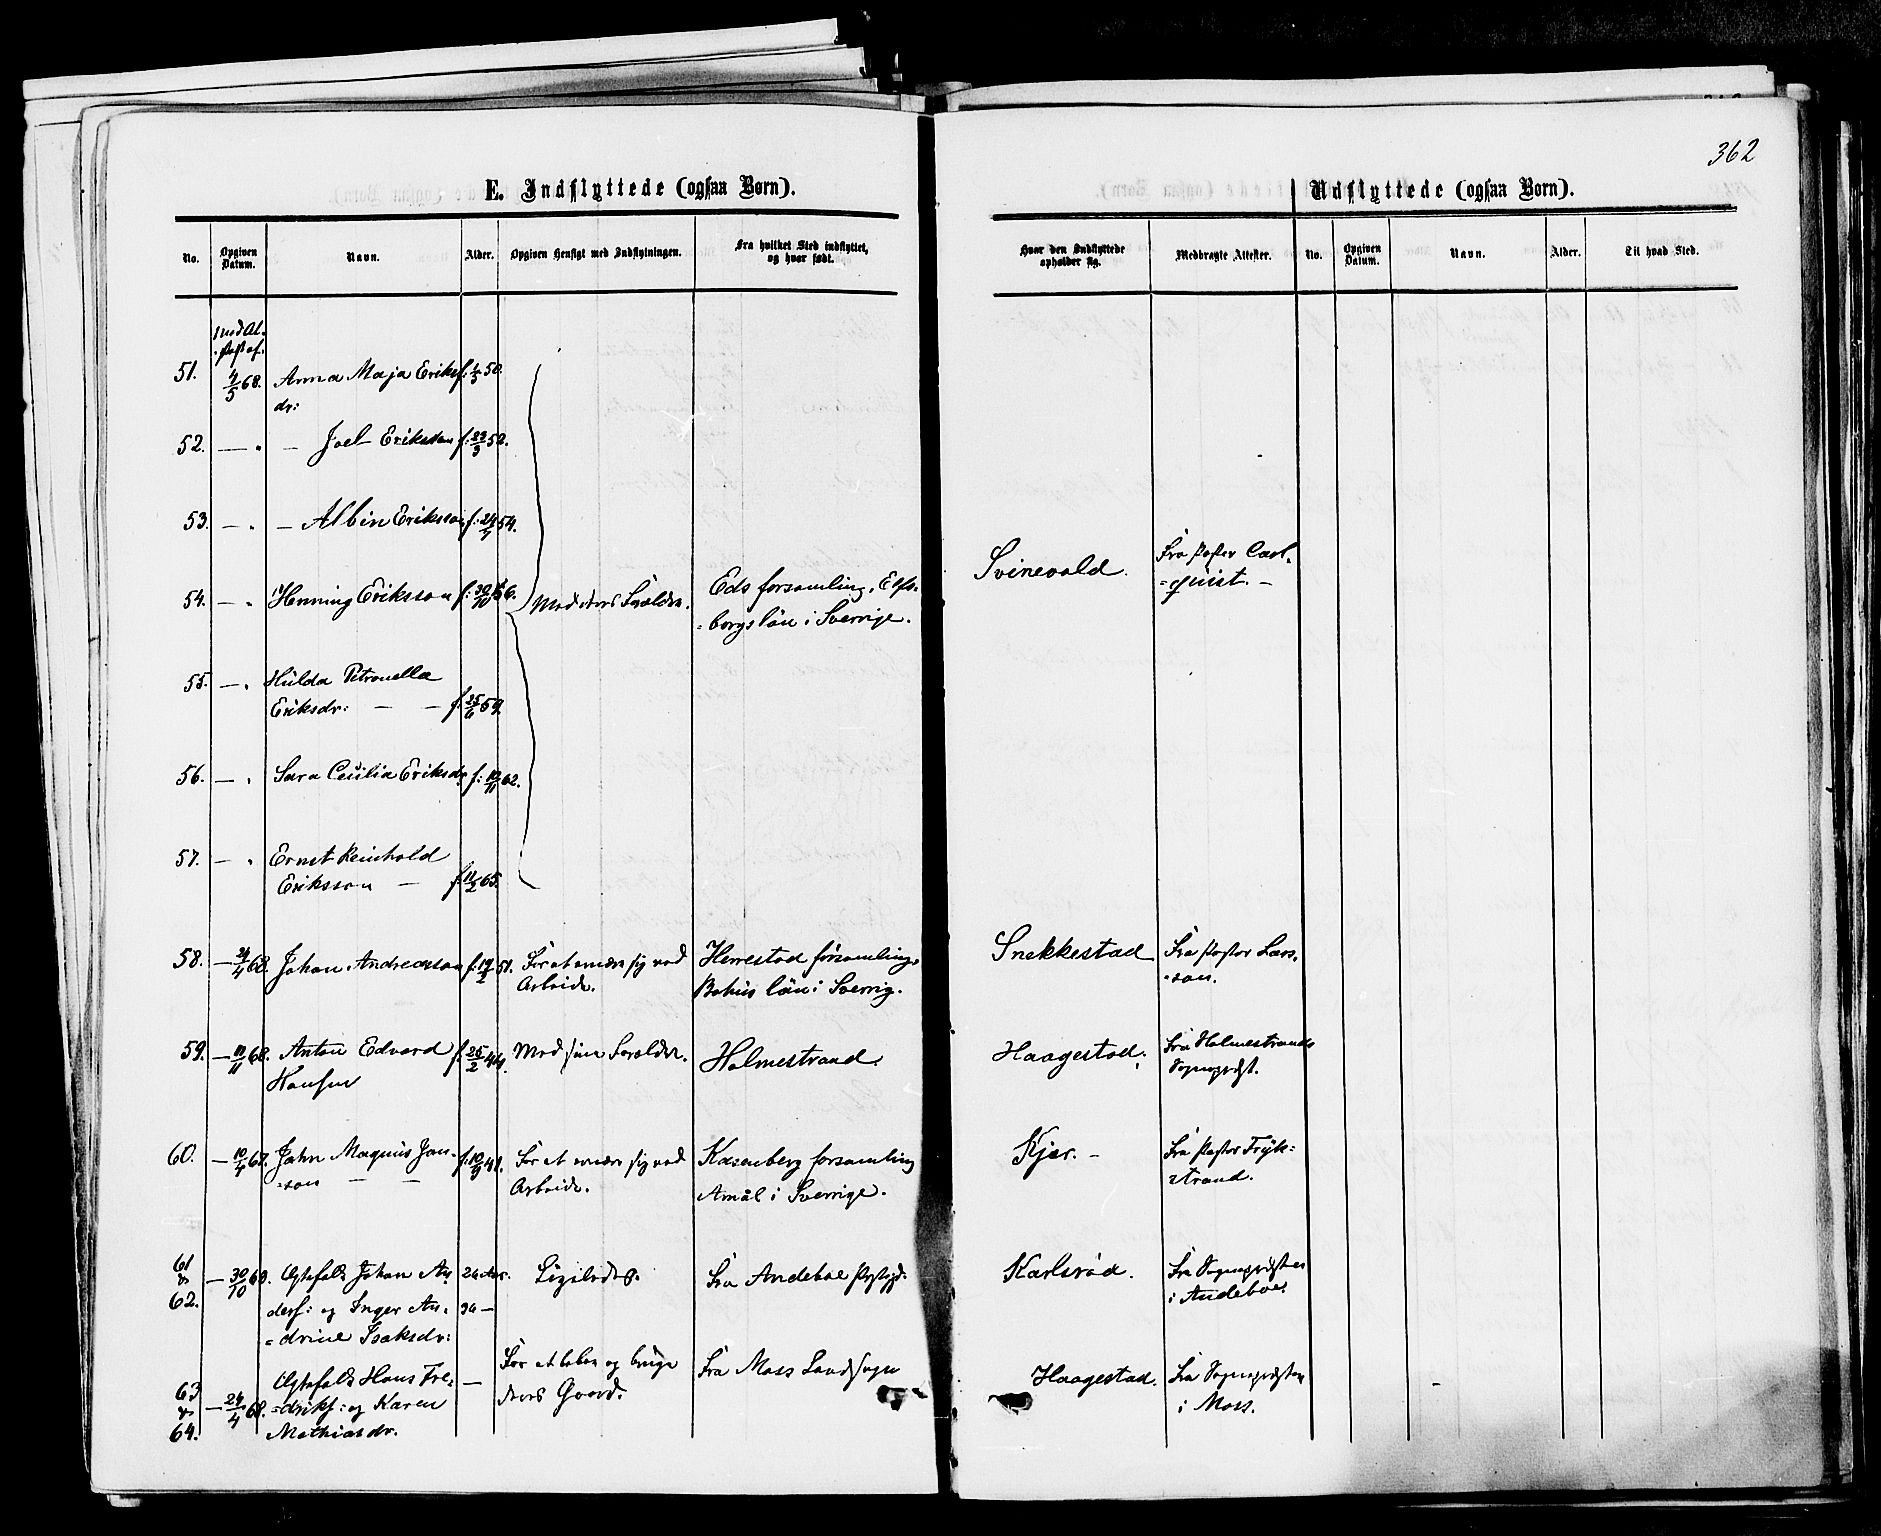 362
E. Indflyttede (ogsaa Børn).
Udflyttede (ogsaa Børn).
No. Opgiven Datum. Navn. Alder. Opgiven Hensigt med Indflytningen. Fra hvilket Sted indflyttet, og hvor født. Hvor den Indflyttede opholder sig. Medbragte Attester. No. Opgiven Datum. Navn. Alder. Til hvad Sted.
med At-
51. 4/5 68. Anna Maja Eriks f: 50.
dr:
52. — " — Joel Eriksson f: 52.
53. — " — Albin Eriksson f: 24/7 54.
54. — " Henning Eriksson f: 30/10 56. Med deres Forældre. Eds forsamling, Elfs- Svinevold. Fra Pastor Carl-
=borgs län i Sverrige. =quist. —
55. — " Hulda Petronella
Eriksdr: — — f: 25/6 59.
56. — " Sara Cecilia Eriksdr f: 12/11 62.
57. — " Ernst Reinhold
Eriksson — f. 11/2 65.
58. — 68. Johan Andreasson f: 19/2 51. For at ernære sig ved Herrestad församling, Snekkestad Fra Pastor Lars-
Arbeide. Bohus län i Sverrig. =son.
59. — 11/11 68. Anton Edvard f. 25/2 44. Med sine Forældre. Holmestrand. Haagestad. Fra Holmestrands
Hansen Sognepræst.
60. — 10/4 67. John Magnus Jan- f: 10/9 41. For at ernære sig ved forsamling Kjær. — Fra Pastor Fryk=
=son — — Arbeide. Åmål i Sverrige. strand.
61
& — 30/10 68. Ægtefolk Johan An 26 Aar. Leilending. Fra Andebøe Præstgjd. Karlsrød. Fra Sognepræsten
62. dersf: og Inger An- 34 — i Andebøe.
=drine Isaksdr:
63 Ægtefolk Hans Fre- — For at beboe og bruge Fra Moss Landsogn Haagestad. Fra Sognepræsten
& — 24/4 68. =driksf: og Karen deres Gaard. i Moss.
64. Mathiasdr.